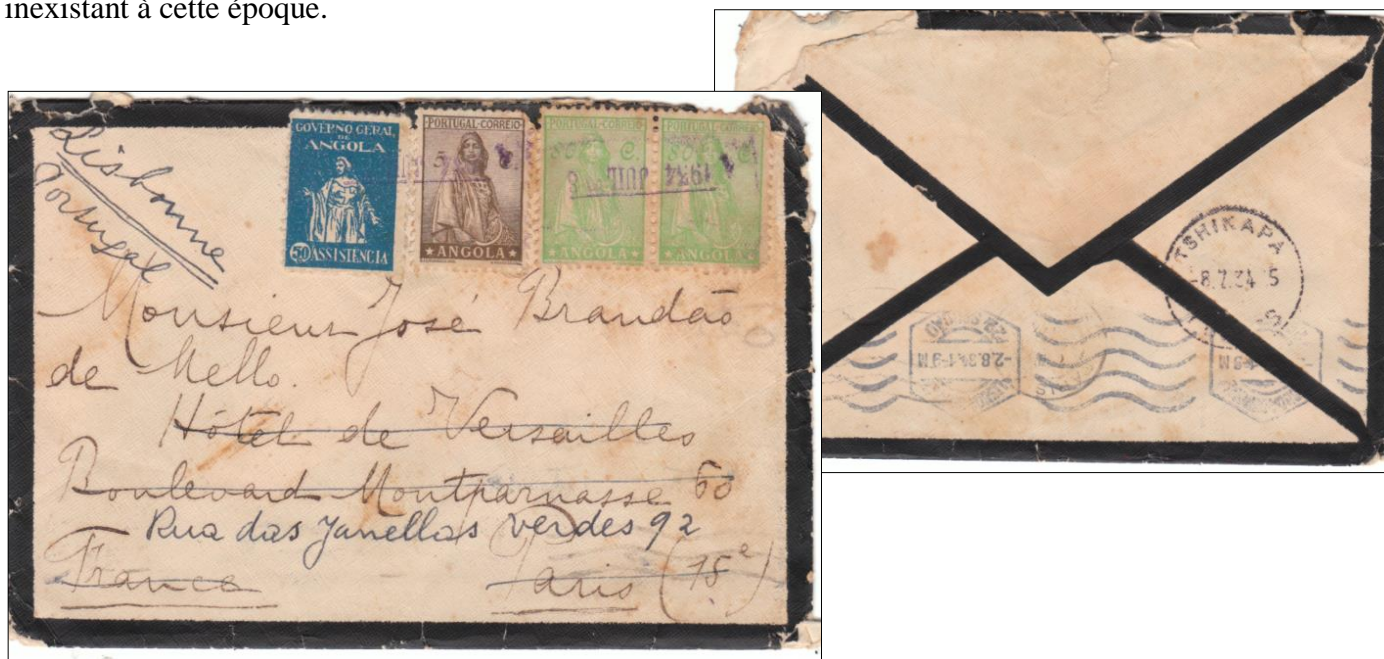 inexistant à cette époque.
Lisbonne
Portugal
GOVERNO GERAL
DE
ANGOLA
50 ASSISTENCIA
PORTUGAL-CORREIO
5
ANGOLA
PORTUGAL-CORREIO
80 C
ANGOLA
PORTUGAL-CORREIO
80 C
ANGOLA
1934 JUIL 3
Monsieur José Brandão
de Mello.
Hôtel de Versailles
Boulevard Montparnasse 60
Rua das Janellas verdes 92
France Paris (15e)
TSHIKAPA
-8.7.34 5
-2.8.34.1-9 M